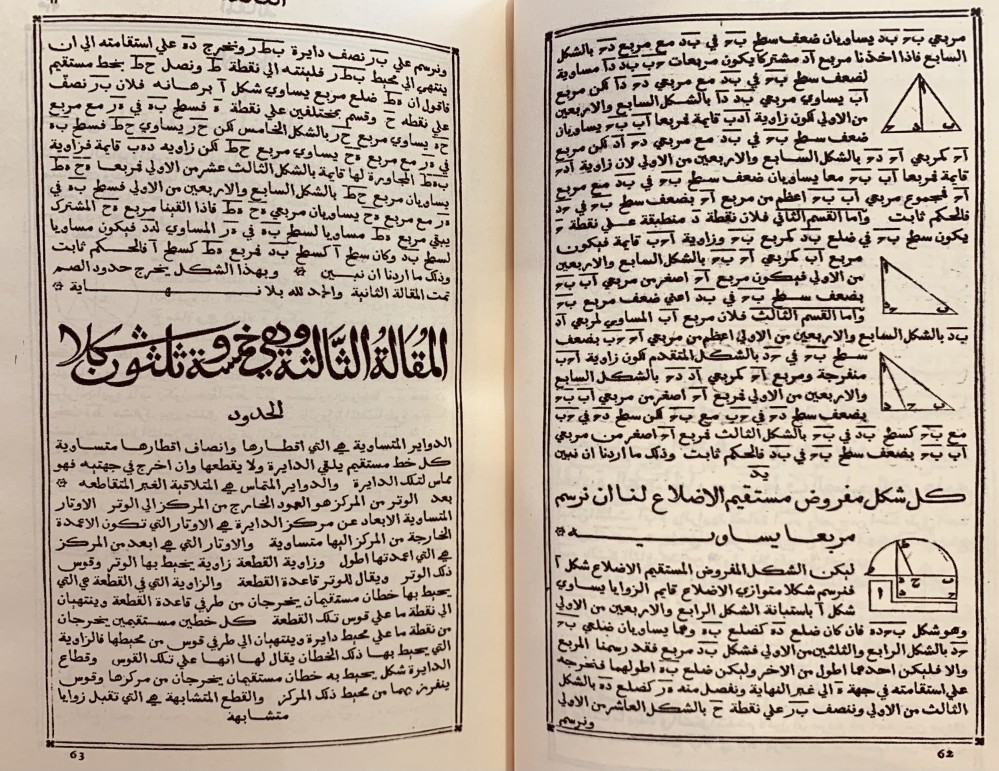 مربعي بر بد يساويان ضعف سطح بر في بد مع مربع در بالشكل
السابع فاذا اخذنا مربع اد مشتركا يكون مربعات رب بد دا مساوية
لضعف سطح بر في بد مع مربعي در دا لكن مربع
اب يساوي مربعي بد دا بالشكل السابع والاربعين
من الاولي لكون زاوية ادب قايمة فمربعا اب بر يساويان
ضعف سطح بر في بد مع مربعي در اد لكن مربع
ار كمربعي اد در بالشكل السابع والاربعين من الاولي لان زاوية ادر
قايمة فمربعا اب بر معا يساويان ضعف سطح بر في بد مع مربع
ار فمجموع مربعي اب بر اعظم من مربع ار بضعف سطح بر في بد
فالحكم ثابت واما القسم الثاني فلان نقطة د منطبقة علي نقطة ر
يكون سطح بر في ضلع بد كمربع بر وزاوية ارب قايمة فيكون
مربع اب كمربعي ار بر بالشكل السابع والاربعين
من الاولي فيكون مربع ار اصغر من مربعي اب بر
بضعف سطح بر في بد اعني ضعف مربع بر
واما القسم الثالث فلان مربع اب المساوي لمربعي اد
بد بالشكل السابع والاربعين من الاولي اعظم من مربعي ار رب بضعف
سطح بر في رد بالشكل المتقدم لكون زاوية ارب
منفرجة ومربع ار كمربعي اد در بالشكل السابع
والاربعين من الاولي فمربع ار اصغر من مربعي اب بر
بضعف سطح در في رب مع بر لكن سطح در في رب
مع بر كسطح بد في بر بالشكل الثالث فمربع ار اصغر من مربعي
اب بر بضعف سطح بر في بد فالحكم ثابت وذلك ما اردنا ان نبين
يد
كل شكل مفروض مستقيم الاضلاع لنا ان نرسم
مربعا يساويه
ليكن الشكل المفروض المستقيم الاضلاع شكل ا
فنرسم شكلا متوازي الاضلاع قايم الزوايا يساوي
شكل ا باستبانة الشكل الرابع والاربعين من الاولي
وهو شكل برده فان كان ضلع ده كضلع به وهما يساويان ضلعي بر
رد بالشكل الرابع والثلثين من الاولي فشكل بد مربع فقد رسمنا المربع
والا فليكن احدهما اطول من الاخر وليكن ضلع به اطولهما فنخرجه
علي استقامته في جهة ه الي غير النهاية ونفصل منه هر كضلع ده بالشكل
الثالث من الاولي وننصف بر علي نقطة ح بالشكل العاشر من الاولي
ونرسم
62
ونرسم علي بر نصف دايرة بطر ونخرج ده علي استقامته الي ان
ينتهي الي محيط بطر فلينته الي نقطة ط ونصل حط بخط مستقيم
فاقول ان هط ضلع مربع يساوي شكل ا برهانه فلان بر نصف
علي نقطه ح وقسم بمختلفين علي نقطة ه فسطح به في هر مع مربع
حه يساوي مربع حر بالشكل الخامس لكن حر يساوي حط فسطح به
في هر مع مربع هح يساوي مربع حط لكن زاويه دهب قايمة فزاوية
بهط المجاورة لها قايمة بالشكل الثالث عشر من الاولي فمربعا هح هط
يساويان مربع حط بالشكل السابع والاربعين من الاولي فسطح به في
هر مع مربع هح يساويان مربعي هح هط فاذا القينا مربع هح المشترك
يبقي مربع هط مساويا لسطح به في هر المساوي لدد فيكون مساويا
لسطح بد وكان سطح ا كسطح بد فمربع هط كسطح ا فالحكم ثابت
وذلك ما اردنا ان نبين وبهذا الشكل يخرج حدود الصم
تمت المقالة الثانية والحمد لله بلا نهاية
المقالة الثالثة وهي خمسة وثلثون شكلا
الحدود
الدواير المتساوية هي التي اقطارها وانصاف اقطارها متساوية
كل خط مستقيم يلقي الدايرة ولا يقطعها وان اخرج في جهتيه فهو
مماس لتلك الدايرة والدواير المتماس هي المتلاقية الغير المتقاطعه
بعد الوتر من المركز هو العمود الخارج من المركز الي الوتر الاوتار
المتساوية الابعاد عن مركز الدايرة هي الاوتار التي تكون الاعمدة
الخارجة من المركز اليها متساوية والاوتار التي هي ابعد من المركز
هي التي اعمدتها اطول وزاوية القطعة زاوية يحيط بها الوتر وقوس
ذلك الوتر ويقال للوتر قاعدة القطعة والزاوية التي في القطعة هي التي
يحيط بها خطان مستقيمان يخرجان من طرفي قاعدة القطعة وينتهيان
الي نقطة ما علي قوس تلك القطعة كل خطين مستقيمين يخرجان
من نقطة ما علي محيط دايرة وينتهيان الي طرفي قوس من محيطها فالزاوية
التي يحيط بها ذلك الخطان يقال لها انها علي تلك القوس وقطاع
الدايرة شكل يحيط به خطان مستقيمان يخرجان من مركزها وقوس
ينفرز بهما من محيط ذلك المركز والقطع المتشابهة هي التي تقبل زوايا
متشابهة
63